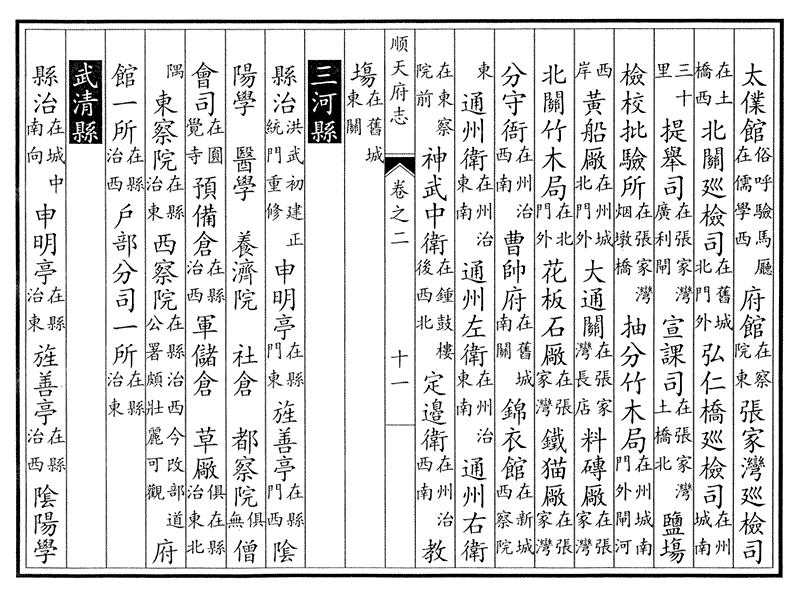 太僕館俗呼驗馬廳在儒學西府館在察院東張家灣巡檢司
在土橋西北關巡檢司在舊城北門外弘仁橋巡檢司在州城南
三十里提舉司在張家灣廣利閘宣課司在張家灣土橋北鹽塲
檢校批驗所在張家灣烟墩橋抽分竹木局在州城南門外閘河
西岸黃船厰在州城北門外大通關在張家灣長店料磚厰在張家灣
北關竹木局在北門外花板石厰在張家灣鐵猫厰在張家灣
分守衙在州治西南曹帥府在舊城南關錦衣館在新城西察院
東通州衛在州治東南通州左衛在州治東南通州右衛
在東察院前神武中衛在鍾鼓樓後西北定邊衛在州治西南教
顺天府志 卷之二 十一
塲在舊城東關
三河縣
縣治洪武初建正統門重修申明亭在縣門東旌善亭在縣門西陰
陽學 醫學 養濟院 社倉 都察院俱無僧
會司在圓覺寺預備倉在縣治西軍儲倉 草厰俱在縣治東北
隅東察院在縣治東西察院在縣治西今改部道公署頗壯麗可觀府
館一所在縣治西戶部分司一所在縣治東
武清縣
縣治在城中南向申明亭在縣治東旌善亭在縣治西陰陽學